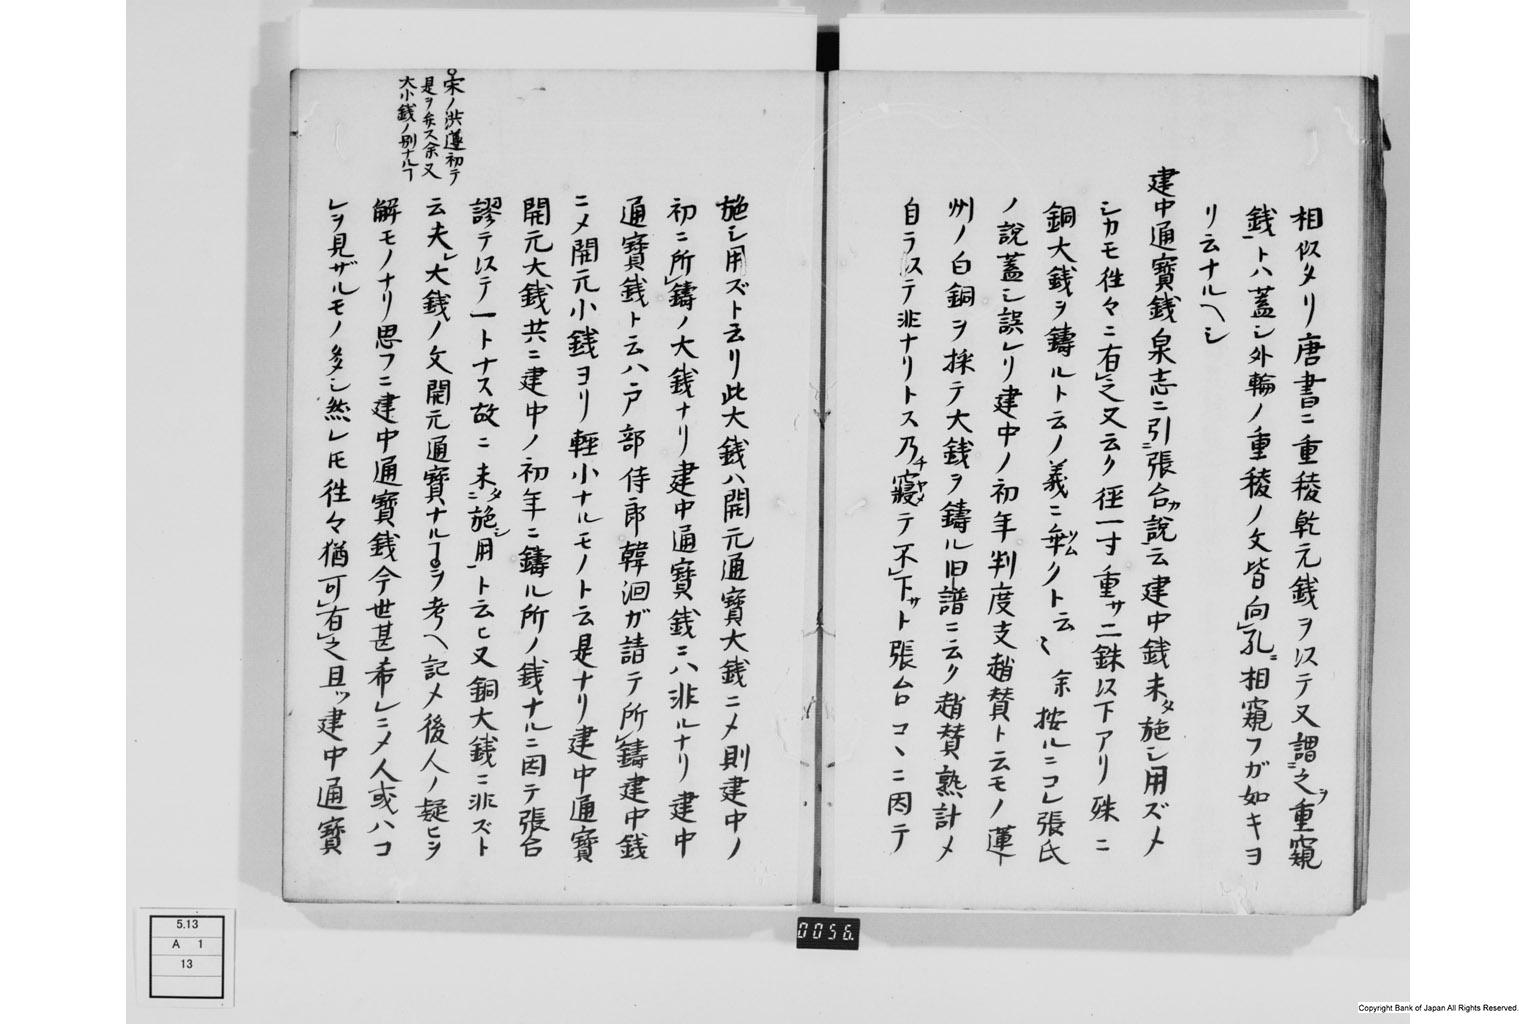 相似タリ唐書ニ重稜乾元銭ヲ以テ又謂之ヲ重窺
銭ト八蓋シ外輪ノ重稜ノ文皆向孔ニ相窺フガ如キヨ
リ云ナルヘシ
建中通寶銭泉志ニ引張台カ說云建中銭未タ施シ用ズメ
シカモ徃々ニ有之又云ク径一寸重サ二銖以下アリ殊ニ
銅大銭ヲ鑄ルト云ノ義ニ乖ソムクト云〻余按ルニコレ張氏
ノ說蓋シ誤レリ建中ノ初年判度支趙賛ト云モノ蓮
州ノ白銅ヲ採テ大銭ヲ鑄ル旧譜ニ云ク趙賛熟計メ
自ラ以テ非ナリトス乃チ寢ヤメテ不下サト張台コヽニ因テ
施シ用ズト云リ此大銭ハ開元通寶大銭ニメ則建中ノ
初ニ所鑄ノ大銭ナリ建中通寶銭ニハ非ルナリ建中
通寶銭ト云ハ戸部侍郎韓洄ガ請テ所鑄建中銭
ニメ開元小銭ヨリ輕小ナルモノト云是ナリ建中通寶
開元大銭共ニ建中ノ初年ニ鑄ル所ノ銭ナルニ因テ張台
謬テ以テ一トナス故ニ未タ施シ用ト云ヒ又銅大銭ニ非ズト
云夫大銭ノ文開元通寶ナルヿヲ考ヘ記メ後人ノ疑ヒヲ
解モノナリ思フニ建中通寶銭今世甚希レニメ人或ハコ
レヲ見ザルモノ多シ然レ𪜈徃々猶可有之且ツ建中通寶
宋ノ洪遵初テ
是ヲ弁ス余又
大小銭ノ別ナルヿ
0056.
5.13
A 1
13
Copyright Bank of Japan All Rights Reserved.